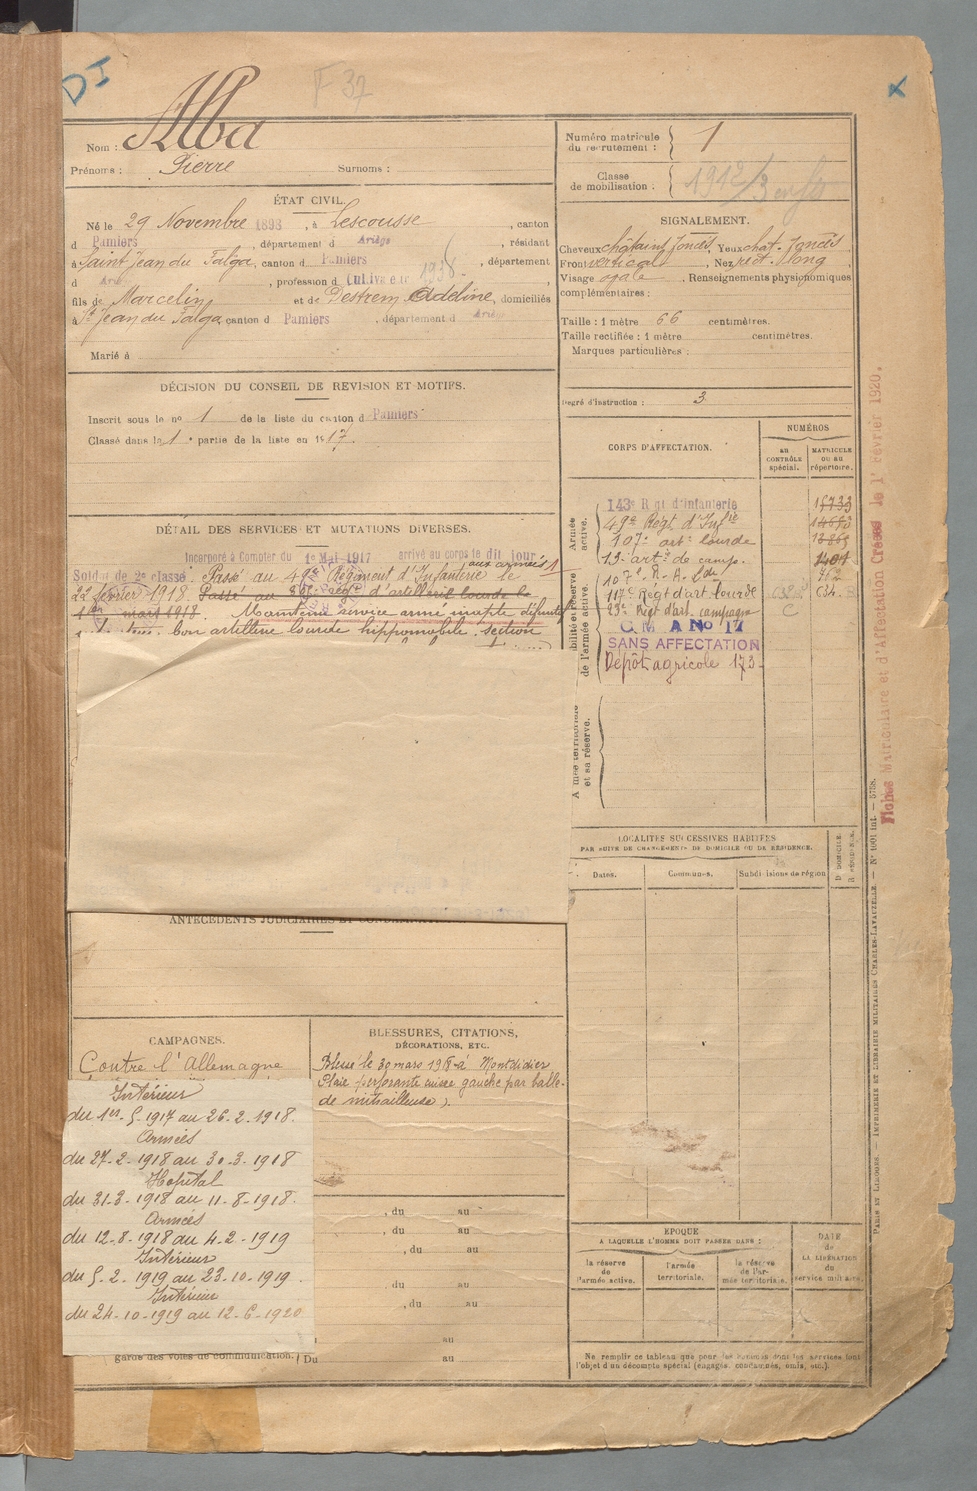 DI
F 37
x
Nom : Alba
Prénoms : Pierre Surnoms :
Numéro matricule du recrutement : 1
Classe de mobilisation : 1912/3 enfts
ÉTAT CIVIL.
Né le 29 Novembre 1898, à Lescousse, canton
d Pamiers, département d Ariège, résidant
à Saint Jean du Falga, canton d Pamiers, département
d Ariè, profession d Cultivateur 1938
fils de Marcelin et de Destrem Adeline, domiciliés
à St Jean du Falga, canton d Pamiers, département d Ariège
Marié à
SIGNALEMENT.
Cheveux châtains foncés, Yeux chat. foncés
Front vertical, Nez rect. long
Visage ovale. Renseignements physionomiques
complémentaires :
Taille : 1 mètre 66 centimètres.
Taille rectifiée : 1 mètre centimètres.
Marques particulières :
Degré d'instruction : 3
DÉCISION DU CONSEIL DE REVISION ET MOTIFS.
Inscrit sous le no 1 de la liste du canton d Pamiers
Classé dans la 1e partie de la liste en 1917.
DÉTAIL DES SERVICES ET MUTATIONS DIVERSES.
Incorporé à Compter du 1er Mai 1917 arrivé au corps le dit jour
aux armées 1
Soldat de 2e classe. Passé au 49e Régiment d'Infanterie le
22 février 1918. Passé au Régt d'artillerie lourde le
1er mars 1918. Maintenu service armé inapte
bon artillerie lourde hippomobile. section
CORPS D'AFFECTATION.
NUMÉROS
AU CONTRÔLE spécial.
MATRICULE OU AU répertoire.
Armée active.
143e Rgt d'Infanterie 15733
49e Régt d'Infie
107e artie lourde
13e artie de camp.
107e R.A. Lde
117e Régt d'art. lourde
23e Régt d'art. campagne C
C M A No 17
SANS AFFECTATION
Dépôt agricole 173
de l'armée active.
et sa réserve.
LOCALITÉS SUCCESSIVES HABITÉES
PAR SUITE DE CHANGEMENTS DE DOMICILE OU DE RÉSIDENCE.
Dates.
Communes.
Subdivisions de région
D. DOMICILE.
R. RÉSIDENCE.
ANTÉCÉDENTS JUDICIAIRES ET
CAMPAGNES.
Contre l'Allemagne
Intérieur
du 1er-5-1917 au 26-2-1918.
Armées
du 27-2-1918 au 30-3-1918
Hopital
du 31-3-1918 au 11-8-1918.
Armées
du 12-8-1918 au 4-2-1919
Intérieur
du 5-2-1919 au 23-10-1919.
Intérieur
du 24-10-1919 au 12-6-1920
garde des voies de communication. Du au
BLESSURES, CITATIONS,
DÉCORATIONS, ETC.
Blessé le 30 mars 1918 à Montdidier
Plaie perforante cuisse gauche par balle
de mitrailleuse).
, du au
, du au
, du au
du au
, du au
au
ÉPOQUE
A LAQUELLE L'HOMME DOIT PASSER DANS :
la réserve de l'armée active.
l'armée territoriale.
la réserve de l'armée territoriale.
DATE de LA LIBÉRATION du service militaire.
Ne remplir ce tableau que pour les hommes dont les services font
l'objet d'un décompte spécial (engagés, condamnés, omis, etc.).
Fiches Matriculaire et d'Affectation Créées le 1er Février 1920.
PARIS ET LIMOGES. — IMPRIMERIE ET LIBRAIRIE MILITAIRES CHARLES-LAVAUZELLE. — No 1001 int. — 5758.